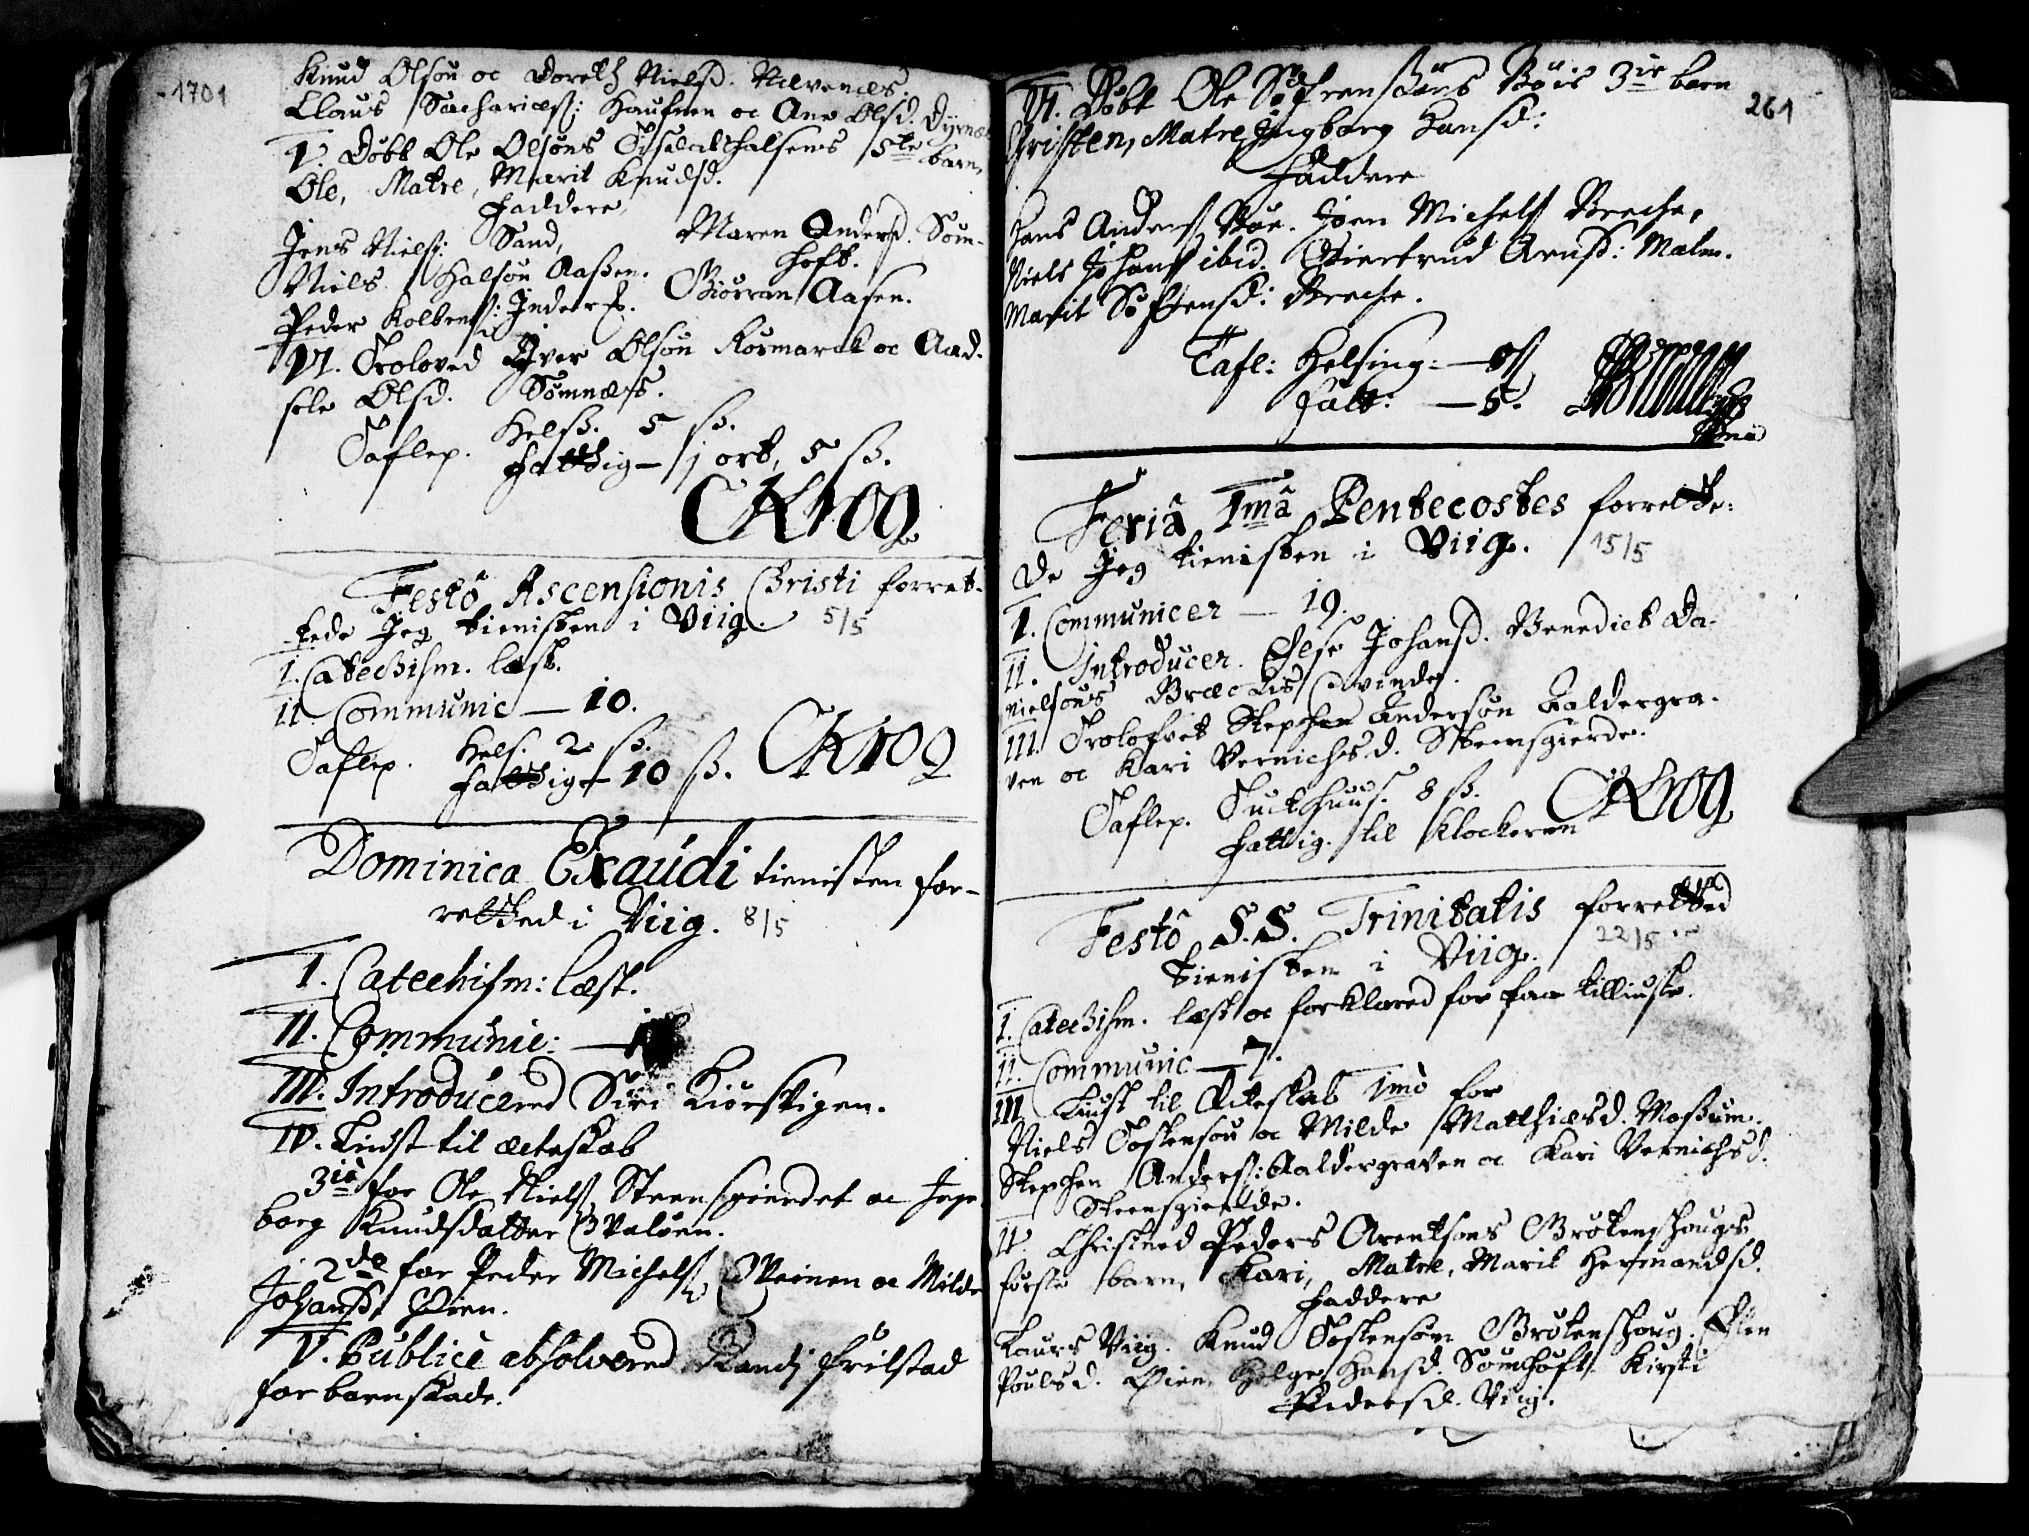 1701
Knud Olsøn oc Doreth Nielsd. Nelvenæs.
Claus Sachariæs: Haufnen oc Ane Olsd. Dyrnæs
V. Døbt Ole Olsøns 5te barn
Ole, Matre, Marit Knudsd.
Faddere
Jens Niels: Sand, Maren Andersd. Søm-
Niels Halsøn Aasen. hoft.
Peder Kolbens: Inderh. Giøran Aasen.
VI. Troloved Iver Olsøn Rosmarck oc Aad-
sele Olsd. Sømnæs.
Taflep. Hels. 5 sk.
Fattig— 1 ort, 5 sk.
CKrog
Festô Ascensionis Christi forret-
tede Jeg tienisten i Viig. 5/5
I. Catechism. læst.
II. Communic — 10.
Taflep. Hels. 2 sk.
Fattig— 10 sk. CKrog
Dominica Exaudi tienisten for-
retted i Viig. 8/5
I. Catechism: læst.
II. Communic: —
III. Introducered Siri Kiørsvigen.
IV. Liust til æcteskab
3ie for Ole Niels Steensgierdet oc Inge
borg Knudsdatter Hvaløen.
2de for Peder Michels Sveinen oc Milde
Johansd. Øien.
V. Publicè absolvered Randj Frilstad
for barnskade.
261
VI. Døbt Ole Søfrensøns Bøis 3ie barn
Christen, Matre, Ingborg Hansd:
Faddere
Hans Anders Bøe. Joen Michels Breche,
Niels Johans ibid. Giertrud Arnsd: Malm.
Marit Søfrensd: Breche.
Tafl: Helsing: — 8
Fatt: — 5.
Feriâ Imâ Pentecostes forrette:
de Jeg tienisten i Viig. 15/5
I. Communicer — 19.
II. Introducer. Else Johansd. Benedict Da-
nielsøns Bræches qvinde.
III. Trolofvet Stephen Andersøn Aaldergra-
ven oc Kari Vernichesd. Steensgierde.
Taflep. Tuckthuus. 8 sk.
Fattig. til Klockeren CKrog
Festô S.S. Trinitatis forretted
tienisten i Viig. 22/5
I. Catechism. læst oc forklared for faa tilliuste.
II. Communic — 7.
III. Liust til Æcteskab 1mò for
Niels Tostensøn oc Milde Matthiæsd. Mossum.
Stephen Anders: Aaldergraven oc Kari Vernichsd.
Steensgierde.
IV. Christned Peders Arentsøns Brøtenshougs
første barn, Kari, Matre, Marit Hermandsd.
Faddere
Laurs Viig. Knud Tostensøn Brøtenshoug. Elen
Poulsd. Øien. Helge Hansd. Sømhoft. Kirsti
Pedersd. Viig.